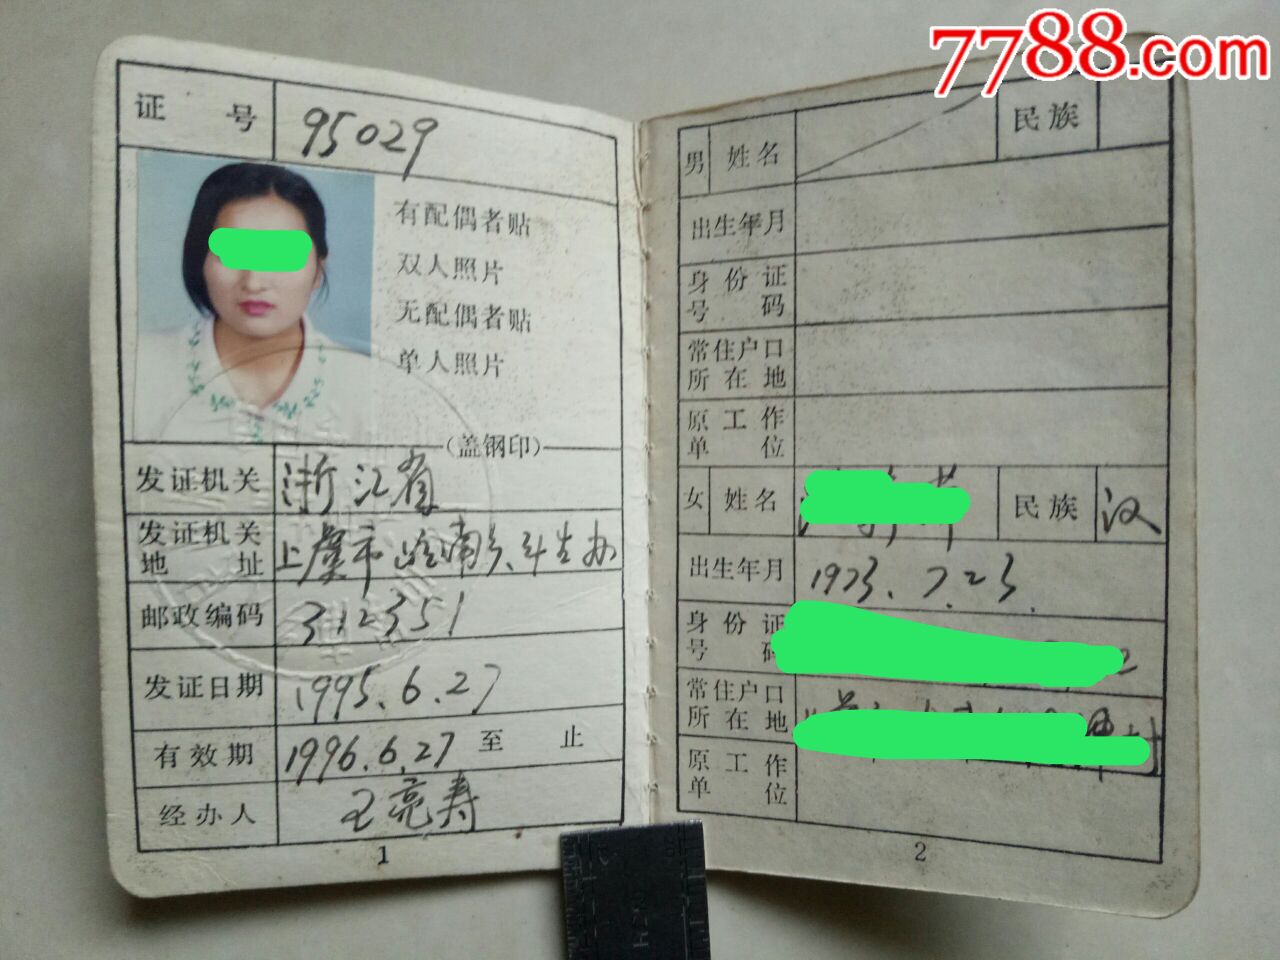 7788.com
证号 95029
有配偶者贴
双人照片
无配偶者贴
单人照片
(盖钢印)
发证机关 浙江省
发证机关地址 上虞市岭南乡计生办
邮政编码 312351
发证日期 1995.6.27
有效期 1996.6.27 至 止
经办人 王亮寿
1
男 姓名 民族
出生年月
身份证号码
常住户口所在地
原工作单位
女 姓名 民族 汉
出生年月 1973.7.23.
身份证号码
常住户口所在地
原工作单位
2